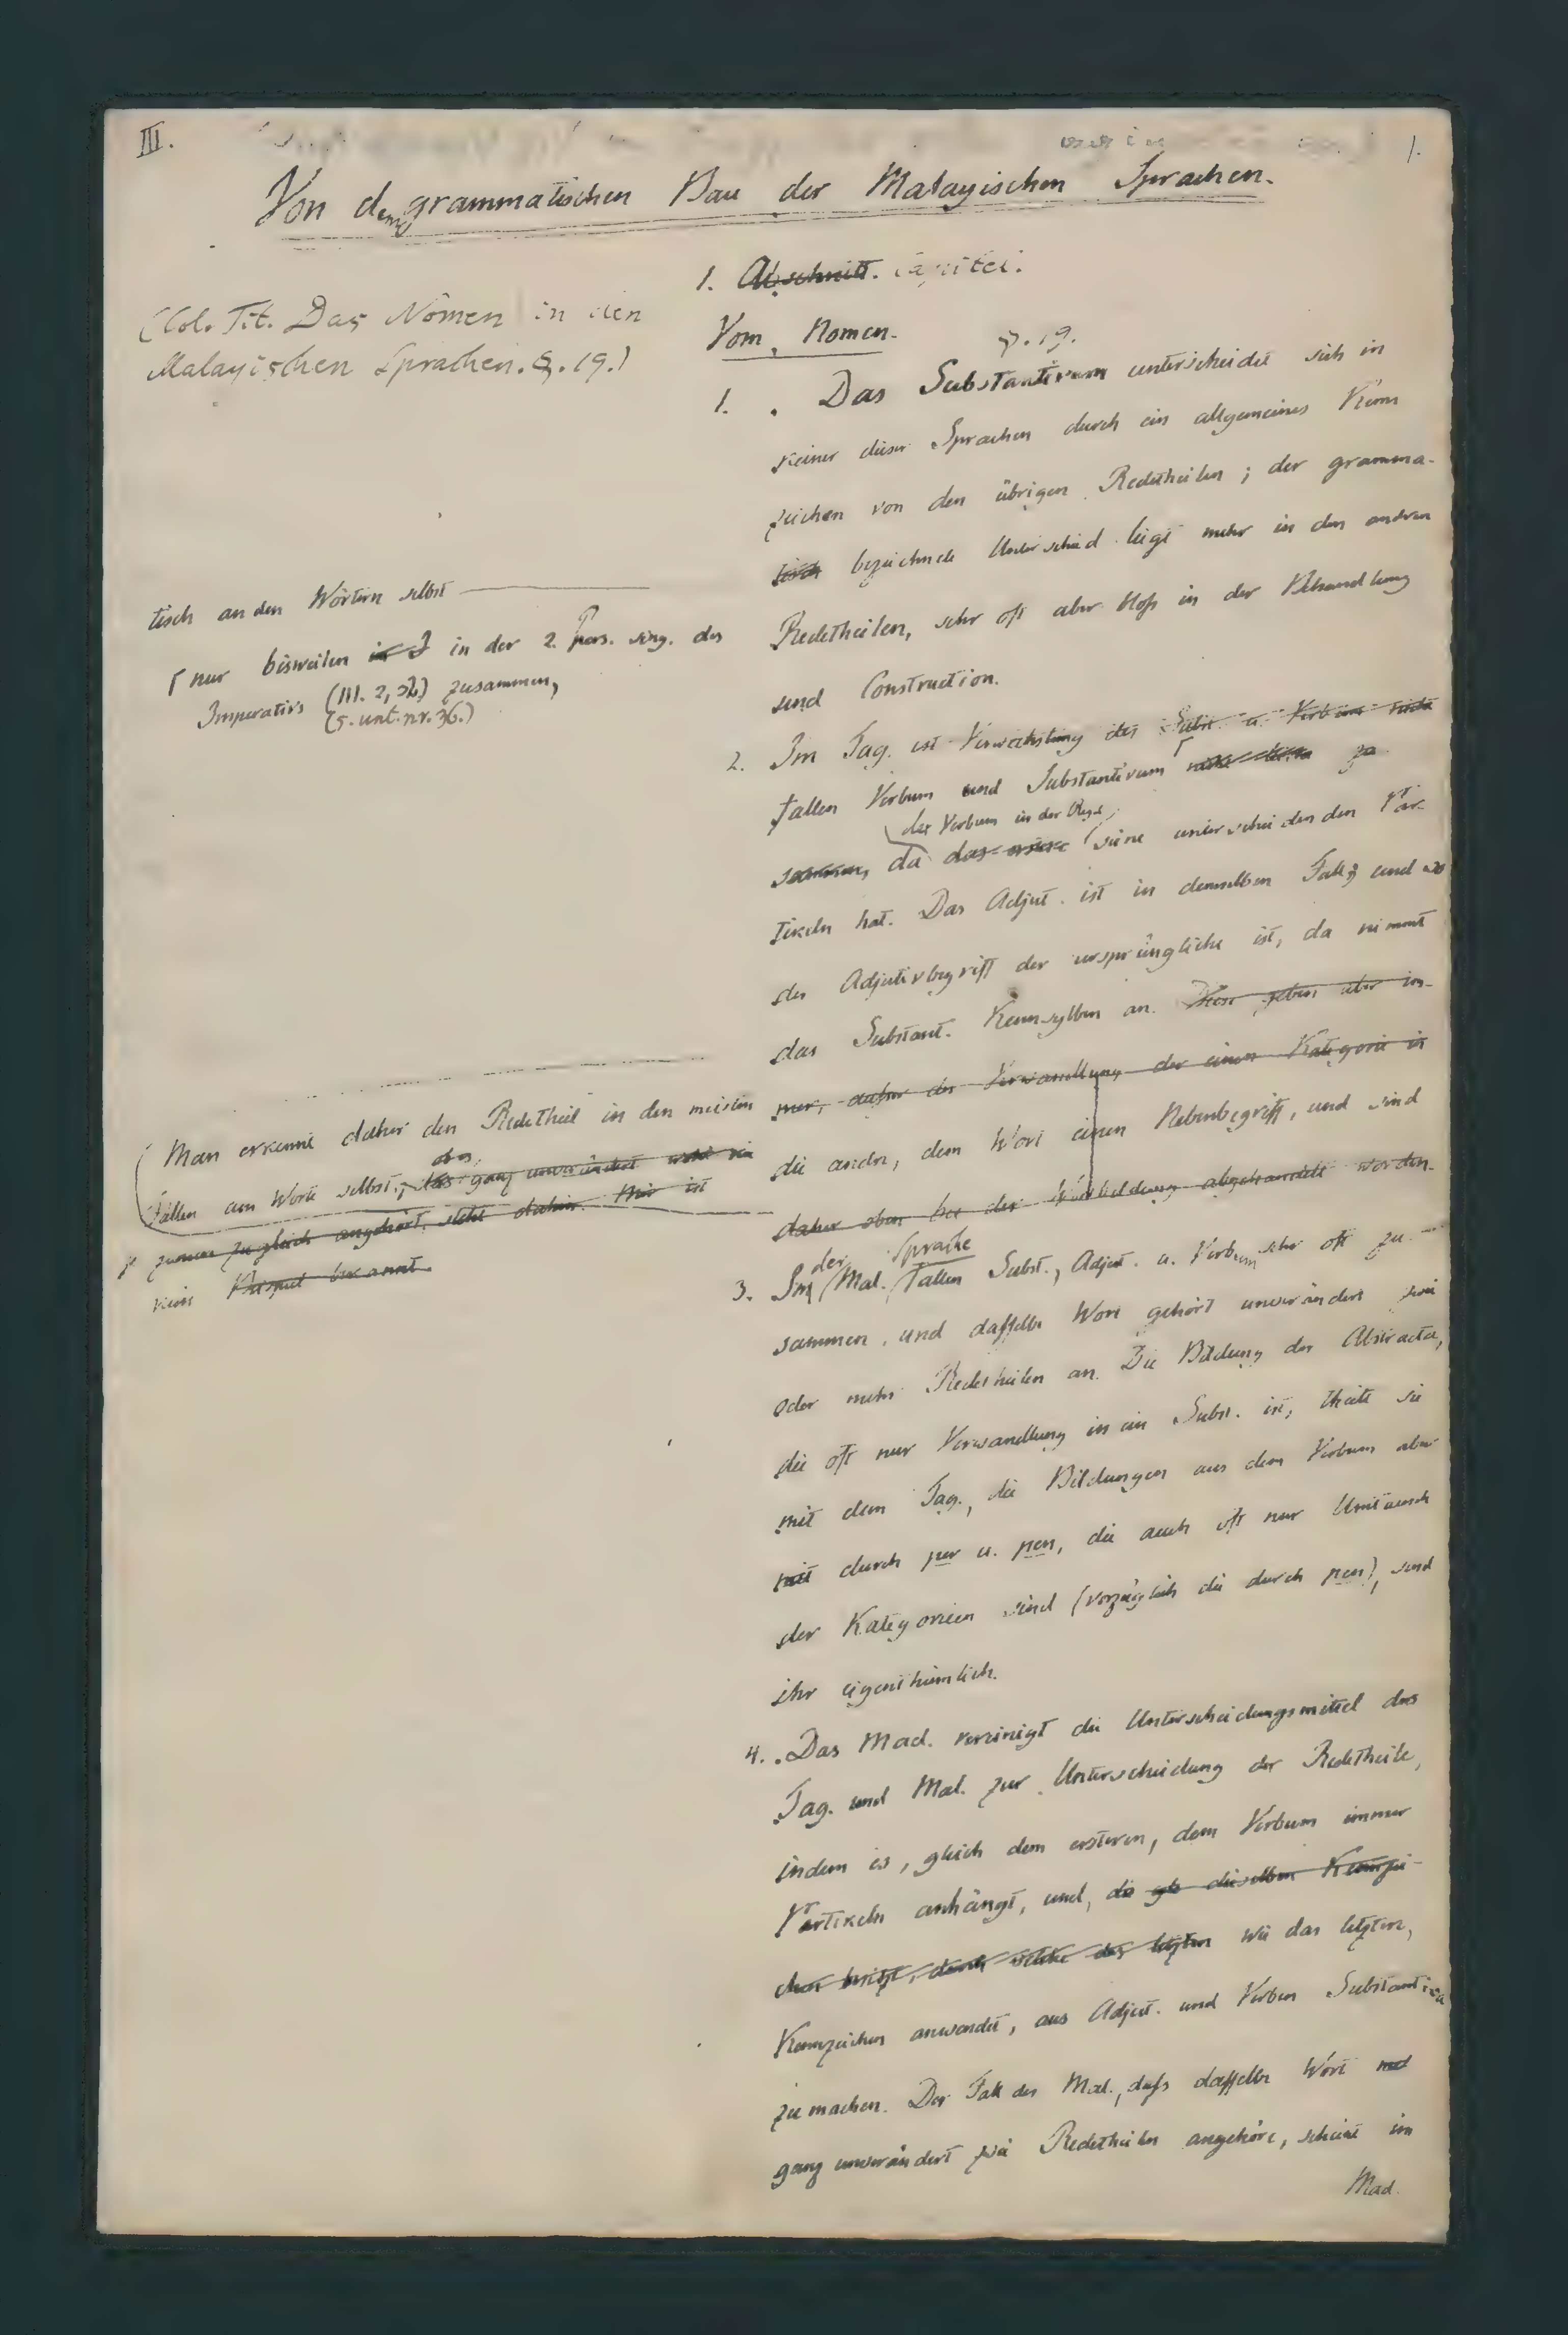 III.
1.
Von dem grammatischen Bau der Malayischen Sprachen.
1. Abschnitt. Capitel.
(Col. Tit. Das Nomen in den
Malayischen Sprachen. §. 19.)
Vom Nomen.
§. 19.
1. Das Substantivum unterscheidet sich in
keiner dieser Sprachen durch ein allgemeines Kenn
zeichen von den übrigen Redetheilen; der gramma-
tisch bezeichnete Unterschied liegt mehr in den andren
Redetheilen, sehr oft aber bloß in der Behandlung
und Construction.
tisch an den Wörtern selbst
nur bisweilen in der 2. pers. sing. des
Imperativs (III. 2, 36) zusammen,
(s. unt. nr. 36.)
2. Im Tag. ist Verwechslung des Subst. u. Verbums nicht
fallen Verbum und Substantivum zu
sammen, da das erstere seine unterscheidenden Par-
das Verbum in der Regel
tikeln hat. Das Adject. ist in demselben Fall; und wo
der Adjectivbegriff der ursprüngliche ist, da nimmt
das Substant. Kennsylben an. Diese geben aber im-
mer, außer der Verwandlung der einen Kategorie in
die andre, dem Wort einen Nebenbegriff, und sind
daher oben bei der Wortbildung abgehandelt worden.
Man erkennt daher den Redetheil in den meisten
Fällen am Worte selbst; das ganz unverändert
zugleich angehört, steht dahin. Mir ist
kein Beispiel bekannt.
3. Im Mal. fallen Subst., Adject. u. Verbum sehr oft zu-
der Sprache
sammen, und dasselbe Wort gehört unverändert zwei
oder mehr Redetheilen an. Die Bildung der Abstracta,
die oft nur Verwandlung in ein Subst. ist, theilt sie
mit dem Tag., die Bildungen aus dem Verbum aber
mit durch per u. pen, die auch oft nur Umtausch
der Kategorieen sind (vorzüglich die durch pen), sind
ihr eigenthümlich.
4. Das Mad. vereinigt die Unterscheidungsmittel des
Tag. und Mal. zur Unterscheidung der Redetheile,
indem es, gleich dem ersteren, dem Verbum immer
Partikeln anhängt, und, die dieselben Kennzei-
chen besitzt, durch welche das letztre wie das letztere,
Kennzeichen anwendet, aus Adject. und Verben Substantiva
zu machen. Der Fall des Mal., daß dasselbe Wort
ganz unverändert zwei Redetheilen angehöre, scheint im
Mad.